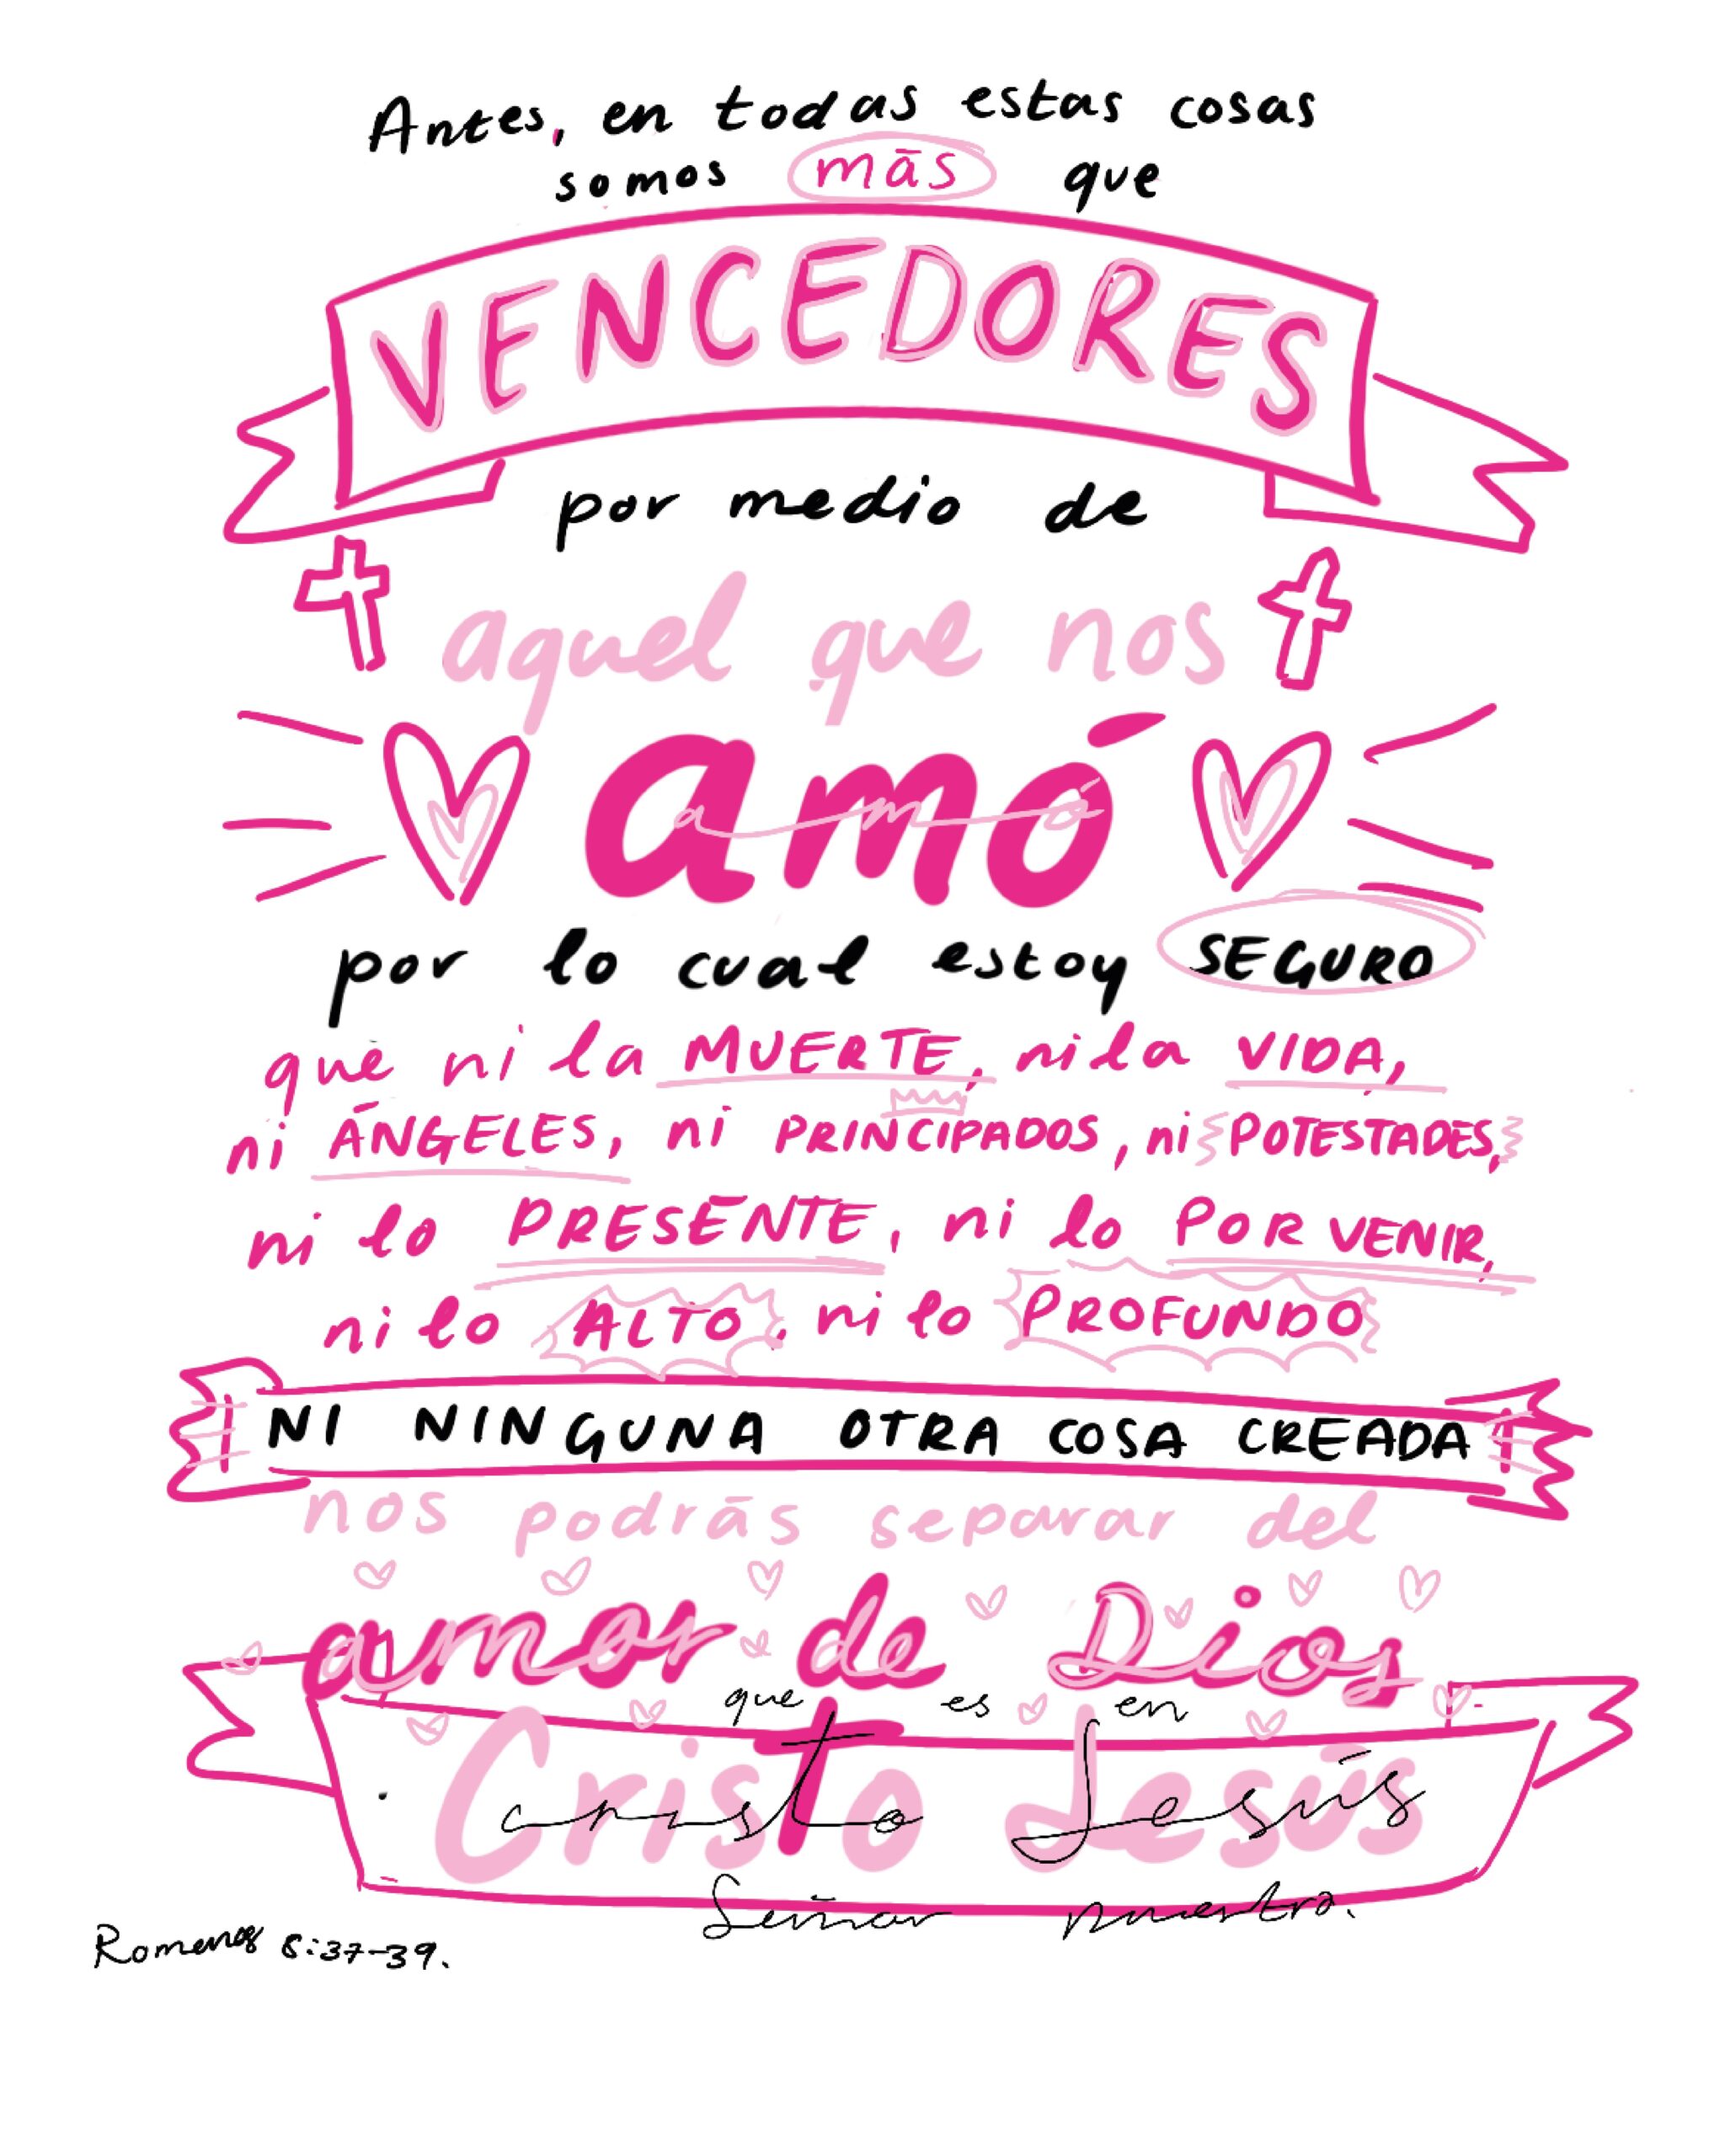 Antes, en todas estas cosas
somos más que
VENCEDORES
por medio de
aquel que nos
amó
amó
por lo cual estoy SEGURO
que ni la MUERTE, ni la VIDA,
ni ÁNGELES, ni PRINCIPADOS, ni POTESTADES,
ni lo PRESENTE, ni lo PORVENIR,
ni lo ALTO, ni lo PROFUNDO
NI NINGUNA OTRA COSA CREADA
nos podrás separar del
amor de Dios
que es en
Cristo Jesús
cristo Jesús
Señor nuestro.
Romanos 8:37-39.